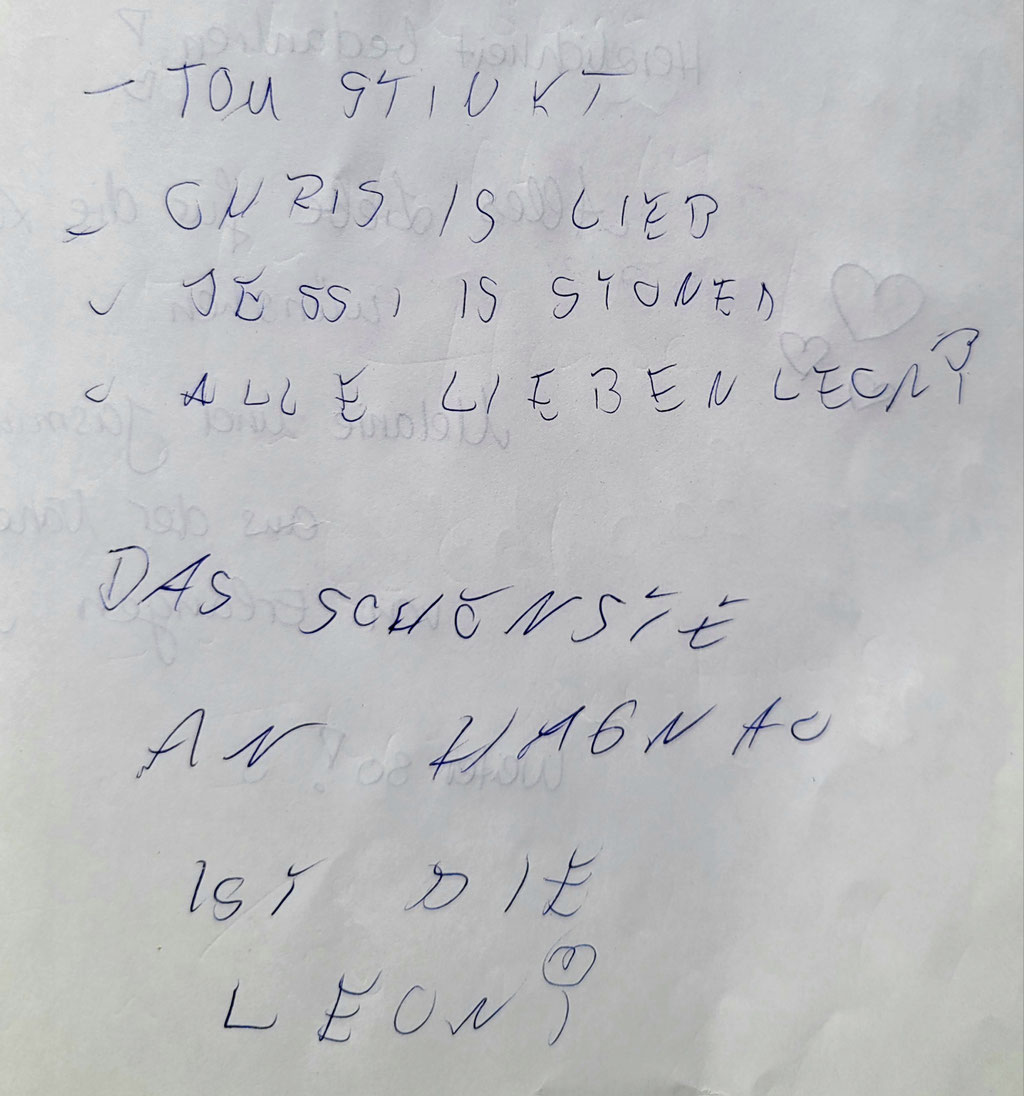 - TOM STINKT
- CHRIS IS LIEB
- JESSI IS STONED
- ALLE LIEBEN LEONI
DAS SCHÖNSTE
AN HAGNAU
IST DIE
LEONI